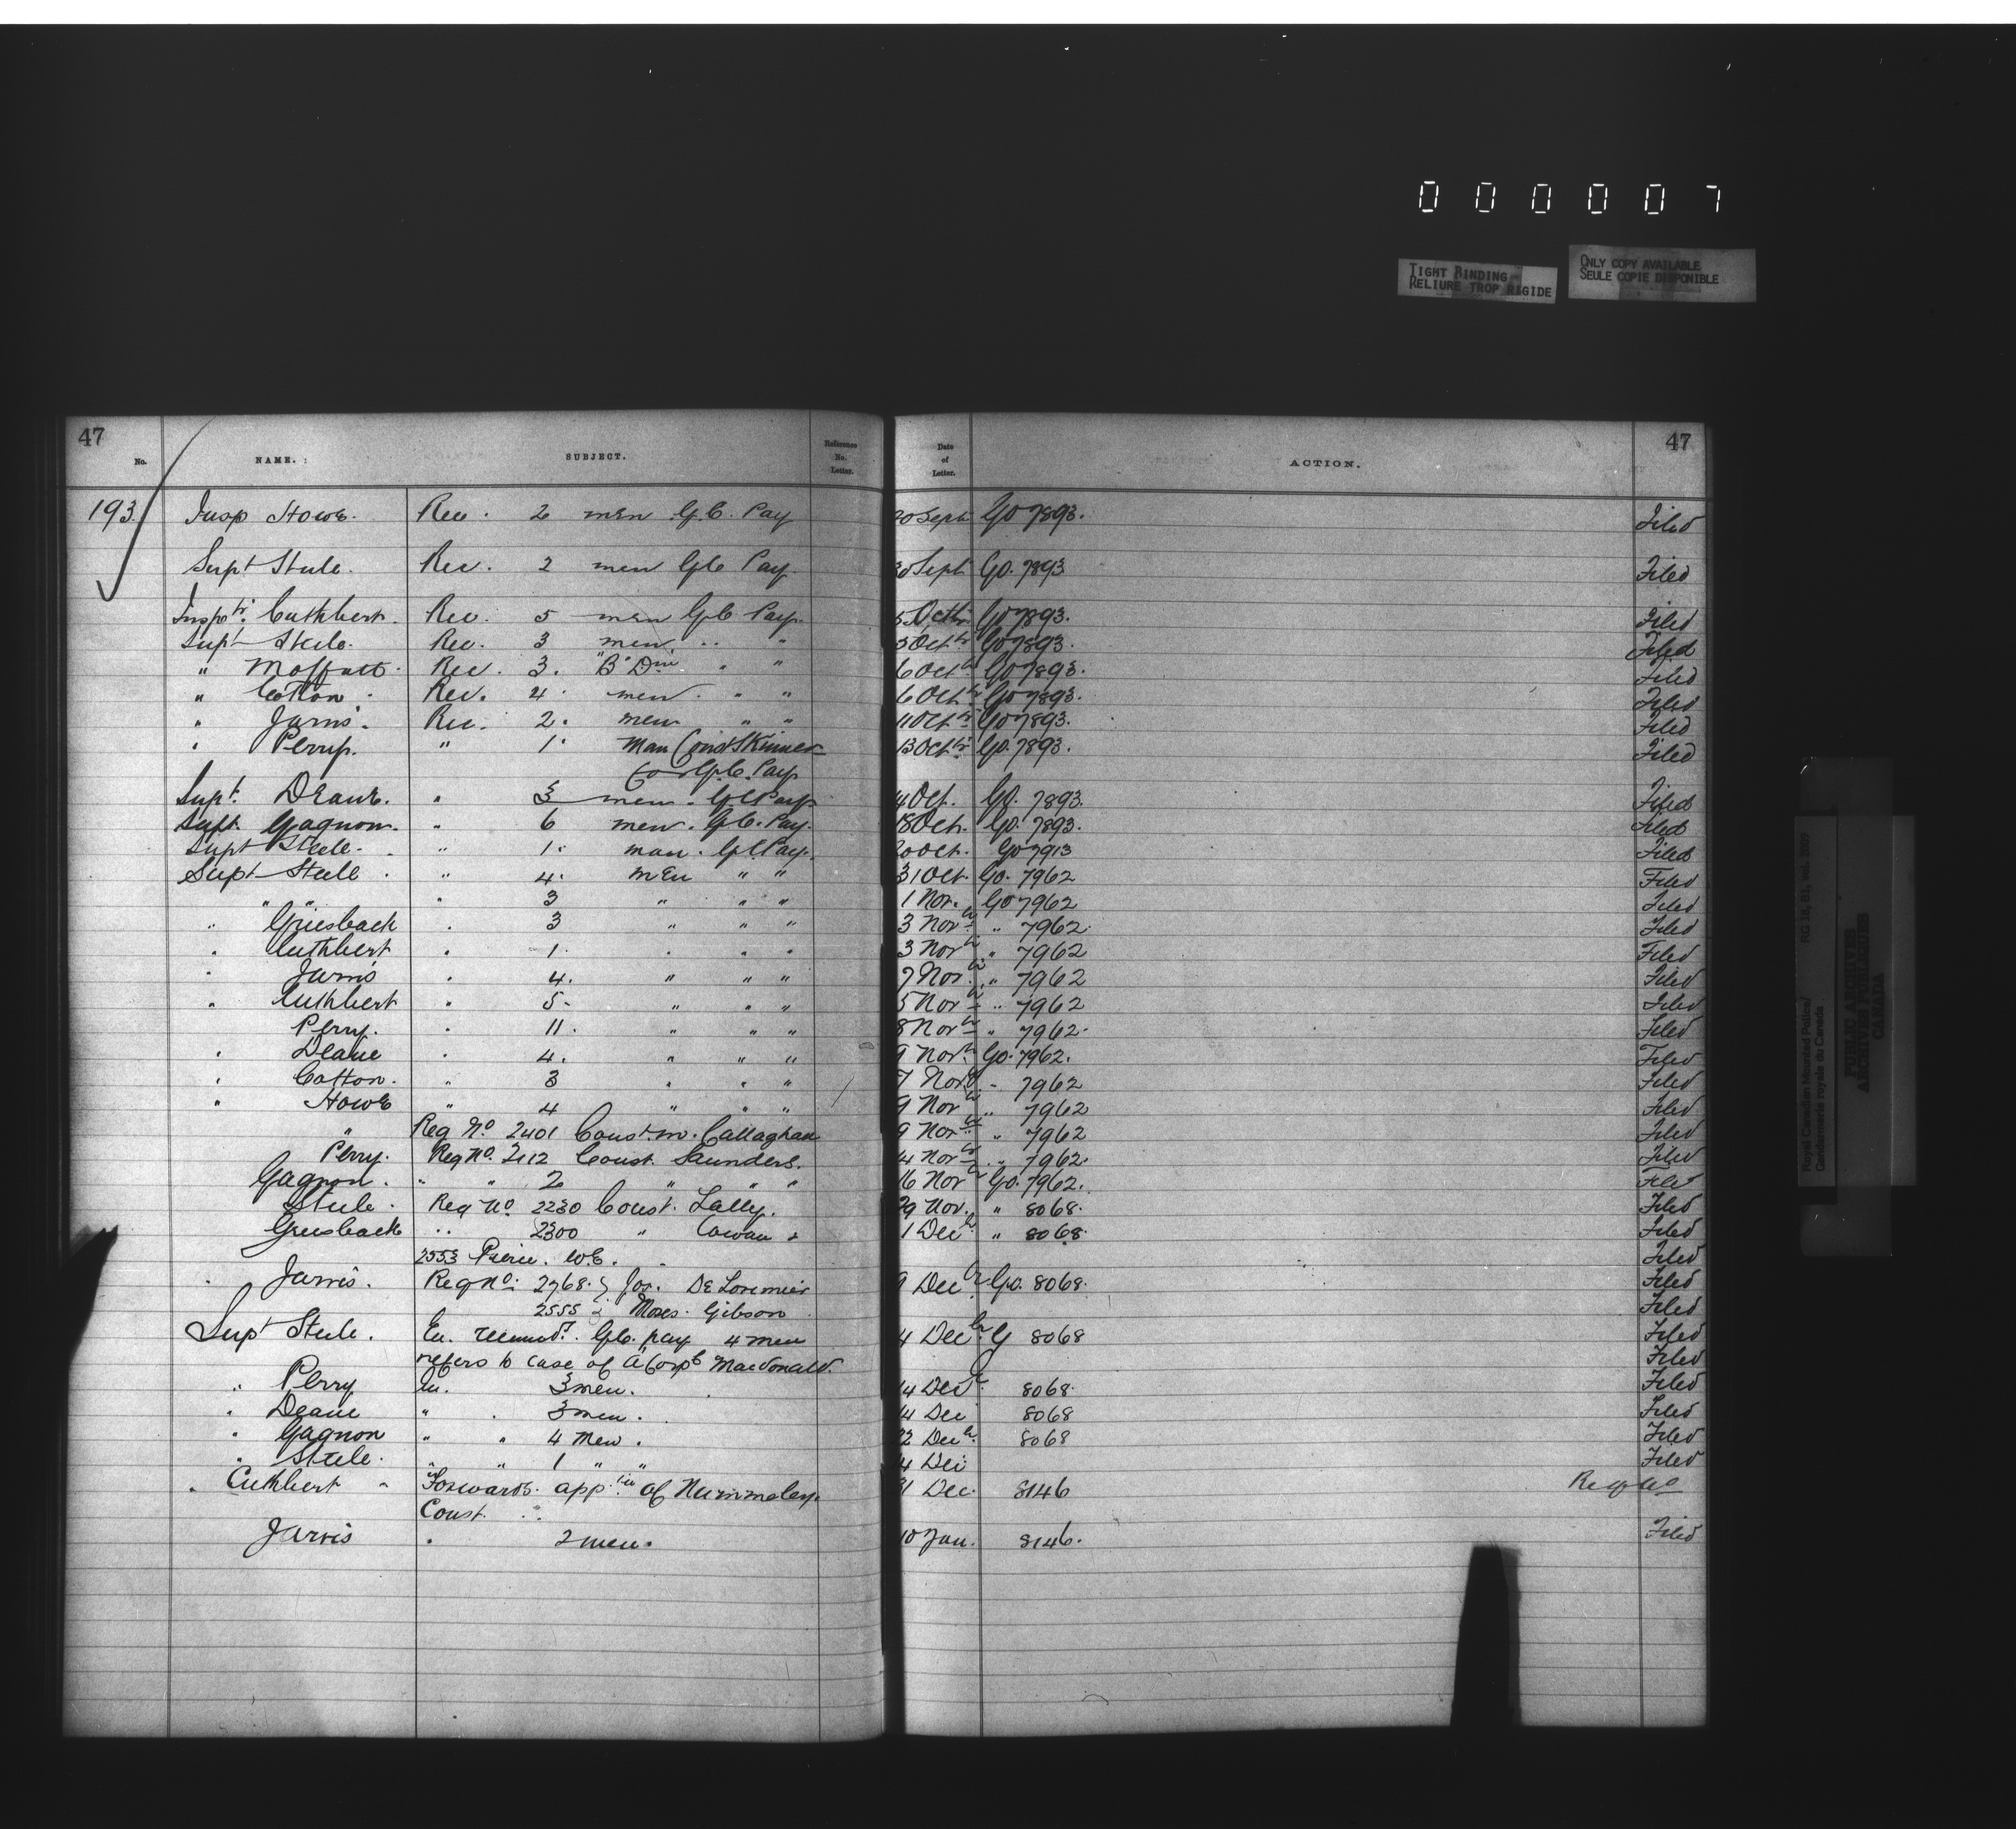 0 0 0 0 0 7
TIGHT BINDING
RELIURE TROP RIGIDE
ONLY COPY AVAILABLE
SEULE COPIE DISPONIBLE
47 47
No. NAME. SUBJECT. Reference No. Letter. Date of Letter. ACTION.
193. Insp Howe. Rec. 2 men G.C. Pay 20 Sept GO 7893. Filed
Supt Steele. Rec. 2 men G.C. Pay 30 Sept GO. 7893 Filed
Inspr. Cuthbert. Rec. 5 men G.C. Pay. 5 Octbr GO 7893. Filed
Supt Steele. Rec. 3 men " " 5 Octbr GO 7893. Filed
" Moffatt. Rec. 3. "B" Divn " " 6 Octbr GO 7893. Filed
" Cotton. Rec. 4. men. " " 6 Octbr GO 7893. Filed
" Jarvis. Rec. 2. men " " 11 Octbr GO 7893. Filed
" Perry. " 1. Man Const Skinner 13 Octbr GO. 7893. Filed
for G.C. Pay
Supt. Deane. " 3 men. G.C Pay 14 Oct. GO. 7893. Filed
Supt. Gagnon. " 6 men. G.C. Pay. 18 Oct. GO. 7893. Filed
Supt Steele. " 1. man. G.C Pay. 20 Oct. GO 7913 Filed
Supt Steele. " 4. men " " 31 Oct. GO. 7962 Filed
" " " 3 " " " 1 Nov. GO 7962 Filed
" Griesback " 3 " " " 3 Novbr " 7962. Filed
" Cuthbert " 1. " " " 3 Novbr " 7962 Filed
" Jarvis " 4. " " " 7 Novbr " 7962 Filed
" Cuthbert " 5. " " " 5 Novbr " 7962 Filed
Perry. " 11. " " " 8 Novbr " 7962. Filed
" Deane " 4. " " " 9 Novbr GO. 7962. Filed
" Cotton. " 3 " " " 7 Novbr " 7962 Filed
" Howe " 4 " " " 9 Novbr " 7962 Filed
" Reg No 2401 Const. M. Callaghan 9 Novbr " 7962 Filed
Perry. Reg No. 2112 Const. Saunders. 14 Novbr " 7962. Filed
Gagnon. " " 2 " " " 16 Novbr GO. 7962. Filed
Steele. Reg No 2230 Const. Lally. 29 Nov. " 8068. Filed
Griesback " 2300 " Cowan & 1 Decbr " 8068. Filed
2553 Pierce. W.E. Filed
Jarvis. Reg No. 2768. } Jos. De Lorimier 9 Decbr GO. 8068. Filed
2555 } Moses. Gibson Filed
Supt Steele. En. recomd. G.C. pay 4 men 14 Decbr G 8068 Filed
refers to case of a/Corpl Macdonald. Filed
" Perry En. 3 men. 14 Decr 8068. Filed
" Deane " " 3 men. 14 Dec 8068 Filed
" Gagnon " " 4 Men. 22 Decbr 8068 Filed
" Steele. " " 1 " " 14 Dec Filed
" Cuthbert " Forwards. apptin of Nummeley. 31 Dec. 8146 Reg No
Const.
Jarvis " 2 men. 10 Jan. 8146. Filed
Royal Canadian Mounted Police/ RG 18, B1,
Gendarmerie royale du Canada
PUBLIC ARCHIVES
ARCHIVES PUBLIQUES
CANADA